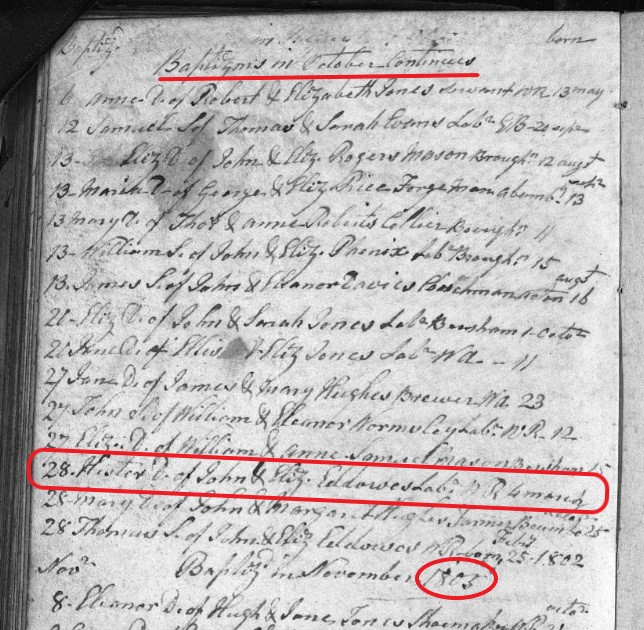 Baptiz.d born
Baptizms in October Continues
6 anne D. of Robert & Elizabeth Jones Servant WR 13 may
12 Samuel S. of Thomas & Sarah Evans Lab.r
13 Eliz. D. of John & Eliz. Rogers Mason Brough.n 12 augst
13 Maria D. of George & Eliz. Price Forgeman 13
13 Mary D. of Tho.s & anne Roberts Collier Brough.n 11
13 William S. of John & Eliz. Phenix Lab.r Brough.n 15 augst
13 James S. of John & Eleanor Davies 16
20 Eliz. D. of John & Sarah Jones Lab.r Bersham 1 Octo.r
D. of Ellis & Eliz Jones Lab.r Wa - 11
27 Jane D. of James & Mary Hughes Brewer Wa 23
27 John S. of William & Eleanor Wormsley Lab.r WR. 12
27 Eliz. D. of William & anne Samuel Mason Bersham 15
28 Hester D. of John & Eliz. Eddowes Lab.r WR 4 march
28 Mary D. of John & Margaret Hughes 25
28 Thomas S. of John & Eliz Eddowes WR born Feb.y 25-1802
Nov.r Baptiz.d in November 1803
8. Eleanor D. of Hugh & Jane Jones Shoemaker WR octo.r